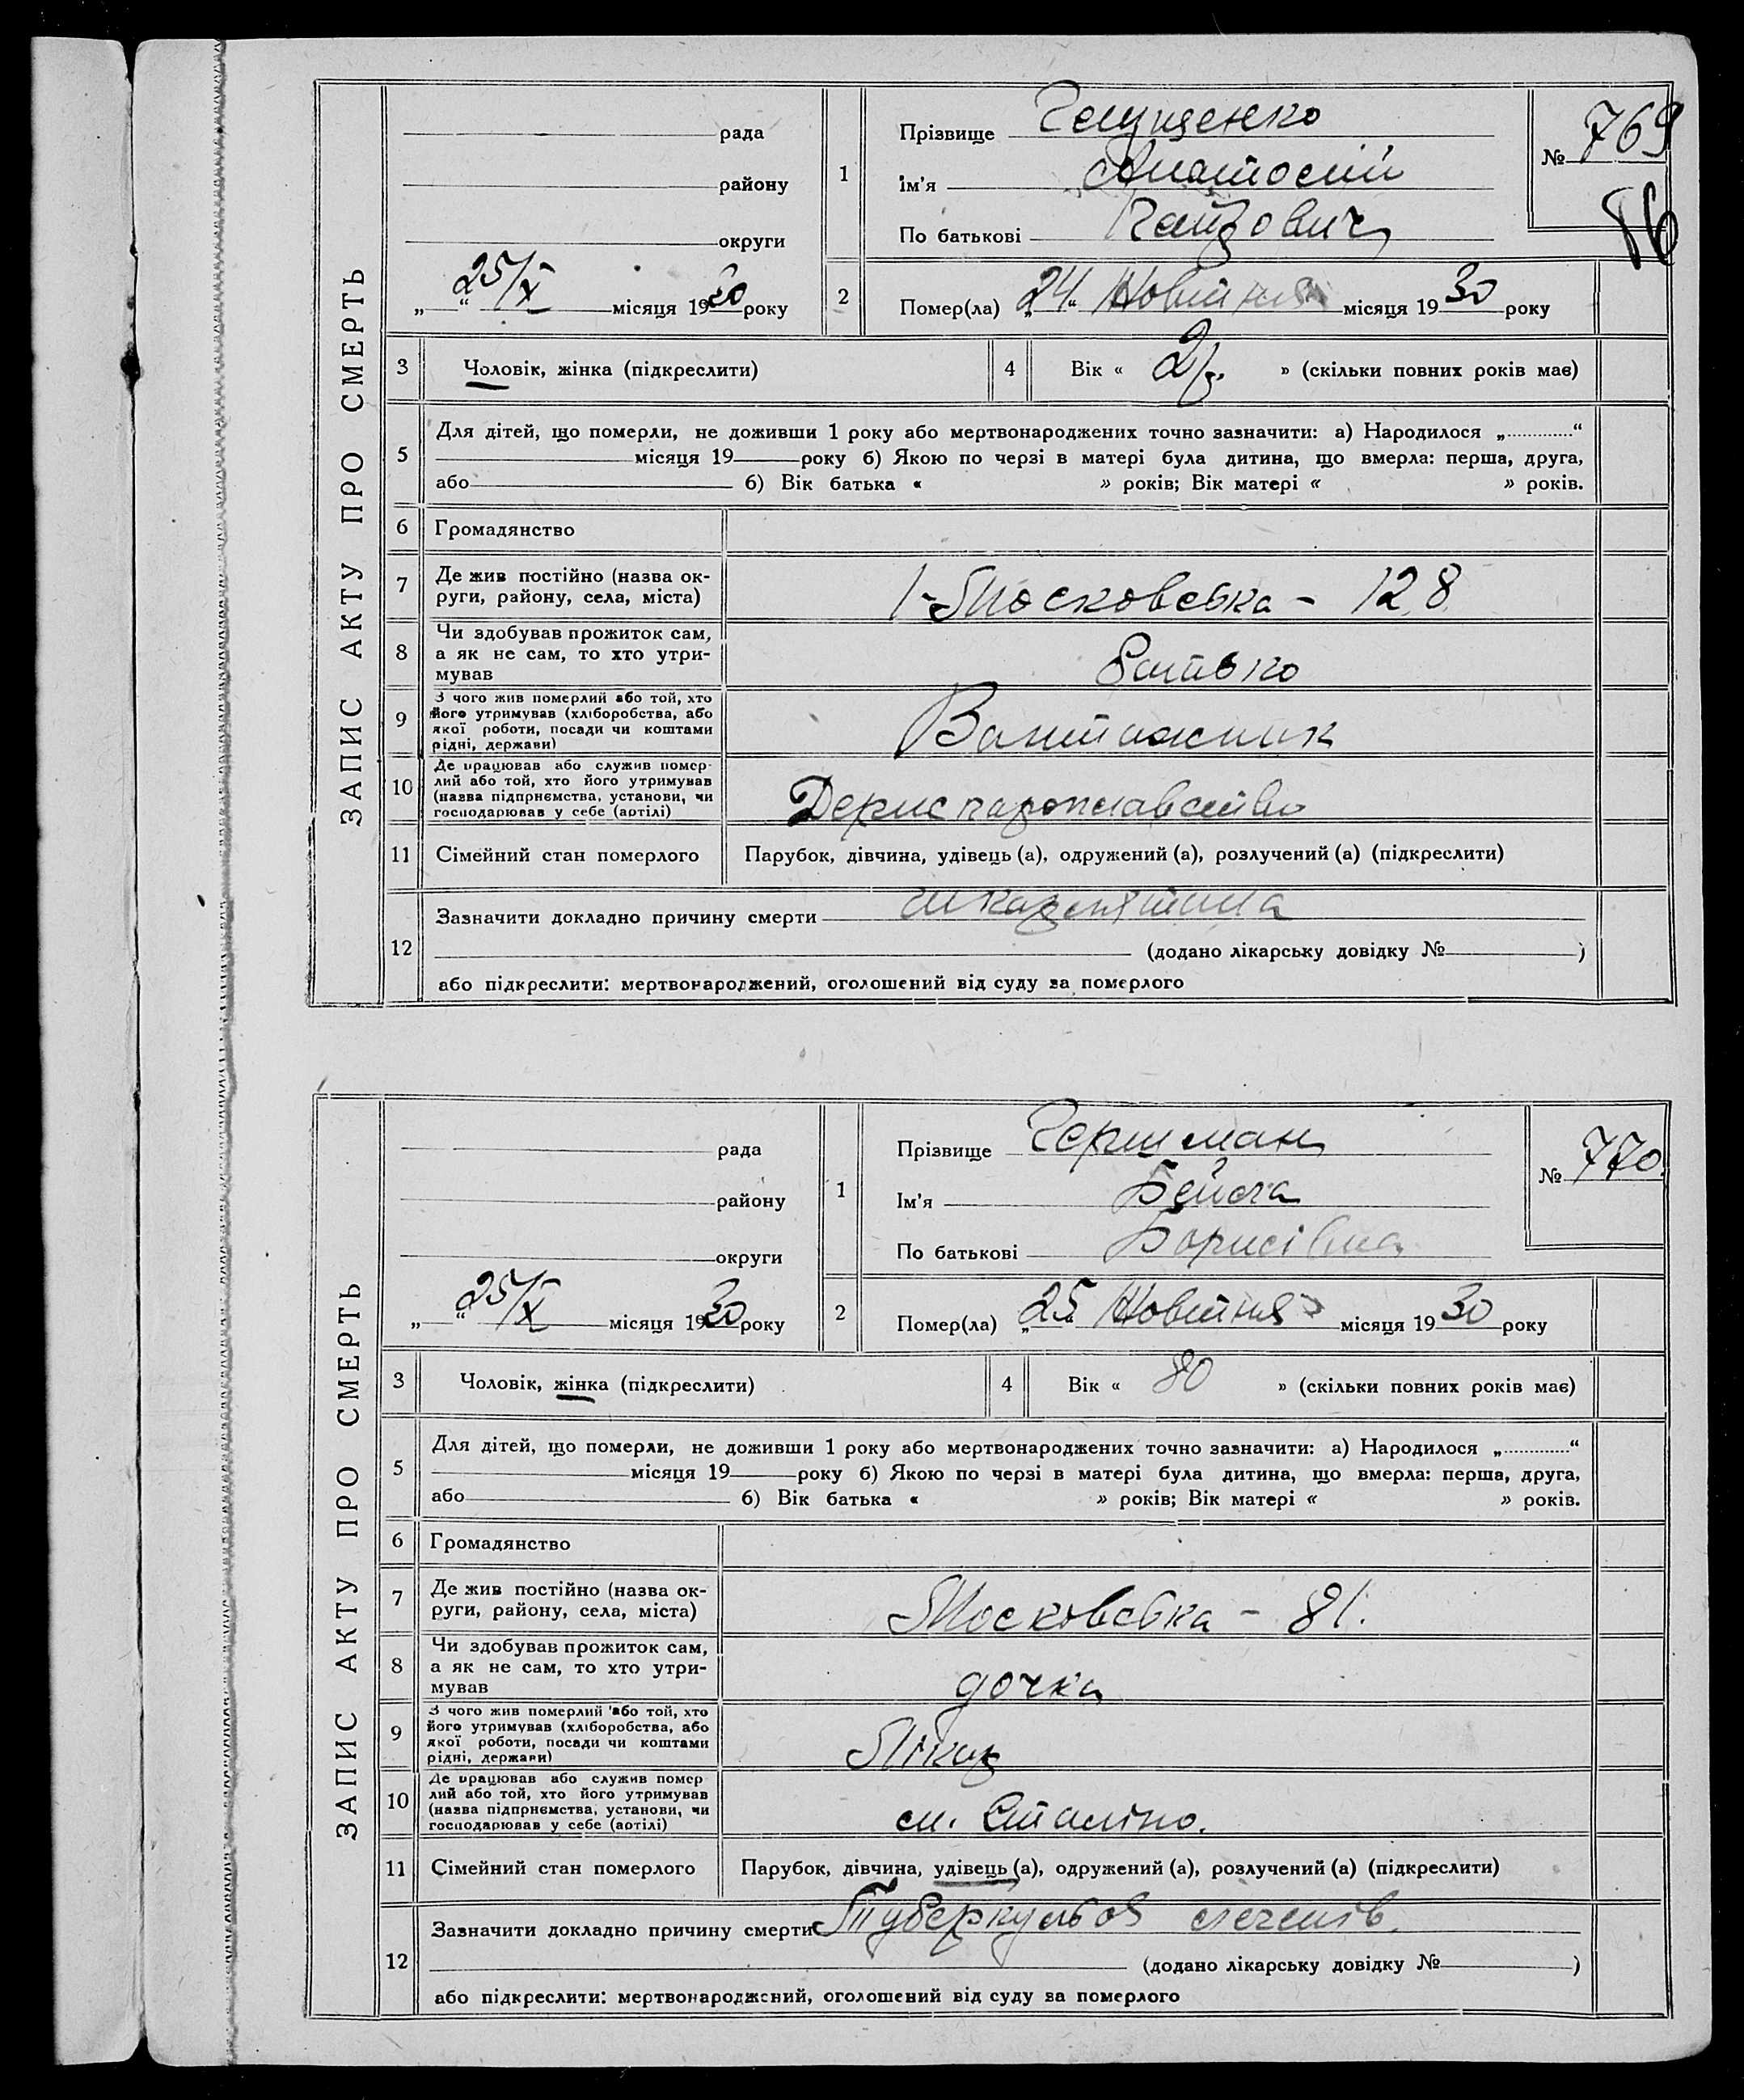 ЗАПИС АКТУ ПРО СМЕРТЬ
рада
району
округи
„ “ 25/X місяця 1930 року
1
Прізвище
Ім'я Анатолій
По батькові
№ 769
56
2
Помер(ла) „24“ Жовтня місяця 1930 року
3 Чоловік, жінка (підкреслити)
4 Вік « 2 » (скільки повних років має)
5
Для дітей, що померли, не доживши 1 року або мертвонароджених точно зазначити: а) Народилося „ “
місяця 19 року б) Якою по черзі в матері була дитина, що вмерла: перша, друга,
або б) Вік батька « » років; Вік матері « » років.
6 Громадянство
7 Де жив постійно (назва ок-
руги, району, села, міста)
1-Московська - 128
8 Чи здобував прожиток сам,
а як не сам, то хто утри-
мував
Батько
9 З чого жив померлий або той, хто
його утримував (хліборобства, або
якої роботи, посади чи коштами
рідні, держави)
Вантажник
10 Де працював або служив помер-
лий або той, хто його утримував
(назва підприємства, установи, чи
господарював у себе (артілі)
Держпароплавство
11 Сімейний стан померлого Парубок, дівчина, удівець (а), одружений (а), розлучений (а) (підкреслити)
12
Зазначити докладно причину смерти шкарлятина
(додано лікарську довідку № )
або підкреслити: мертвонароджений, оголошений від суду за померлого
ЗАПИС АКТУ ПРО СМЕРТЬ
рада
району
округи
„ “ 25/X місяця 1930 року
1
Прізвище Гершман
Ім'я Бейла
По батькові Борисівна
№ 770
2
Помер(ла) „25“ Жовтня місяця 1930 року
3 Чоловік, жінка (підкреслити)
4 Вік « 80 » (скільки повних років має)
5
Для дітей, що померли, не доживши 1 року або мертвонароджених точно зазначити: а) Народилося „ “
місяця 19 року б) Якою по черзі в матері була дитина, що вмерла: перша, друга,
або б) Вік батька « » років; Вік матері « » років.
6 Громадянство
7 Де жив постійно (назва ок-
руги, району, села, міста)
Московська - 81.
8 Чи здобував прожиток сам,
а як не сам, то хто утри-
мував
дочка
9 З чого жив померлий або той, хто
його утримував (хліборобства, або
якої роботи, посади чи коштами
рідні, держави)
Лікар
10 Де працював або служив помер-
лий або той, хто його утримував
(назва підприємства, установи, чи
господарював у себе (артілі)
м. Сталіно.
11 Сімейний стан померлого Парубок, дівчина, удівець (а), одружений (а), розлучений (а) (підкреслити)
12
Зазначити докладно причину смерти Туберкульоз легенів.
(додано лікарську довідку № )
або підкреслити: мертвонароджений, оголошений від суду за померлого